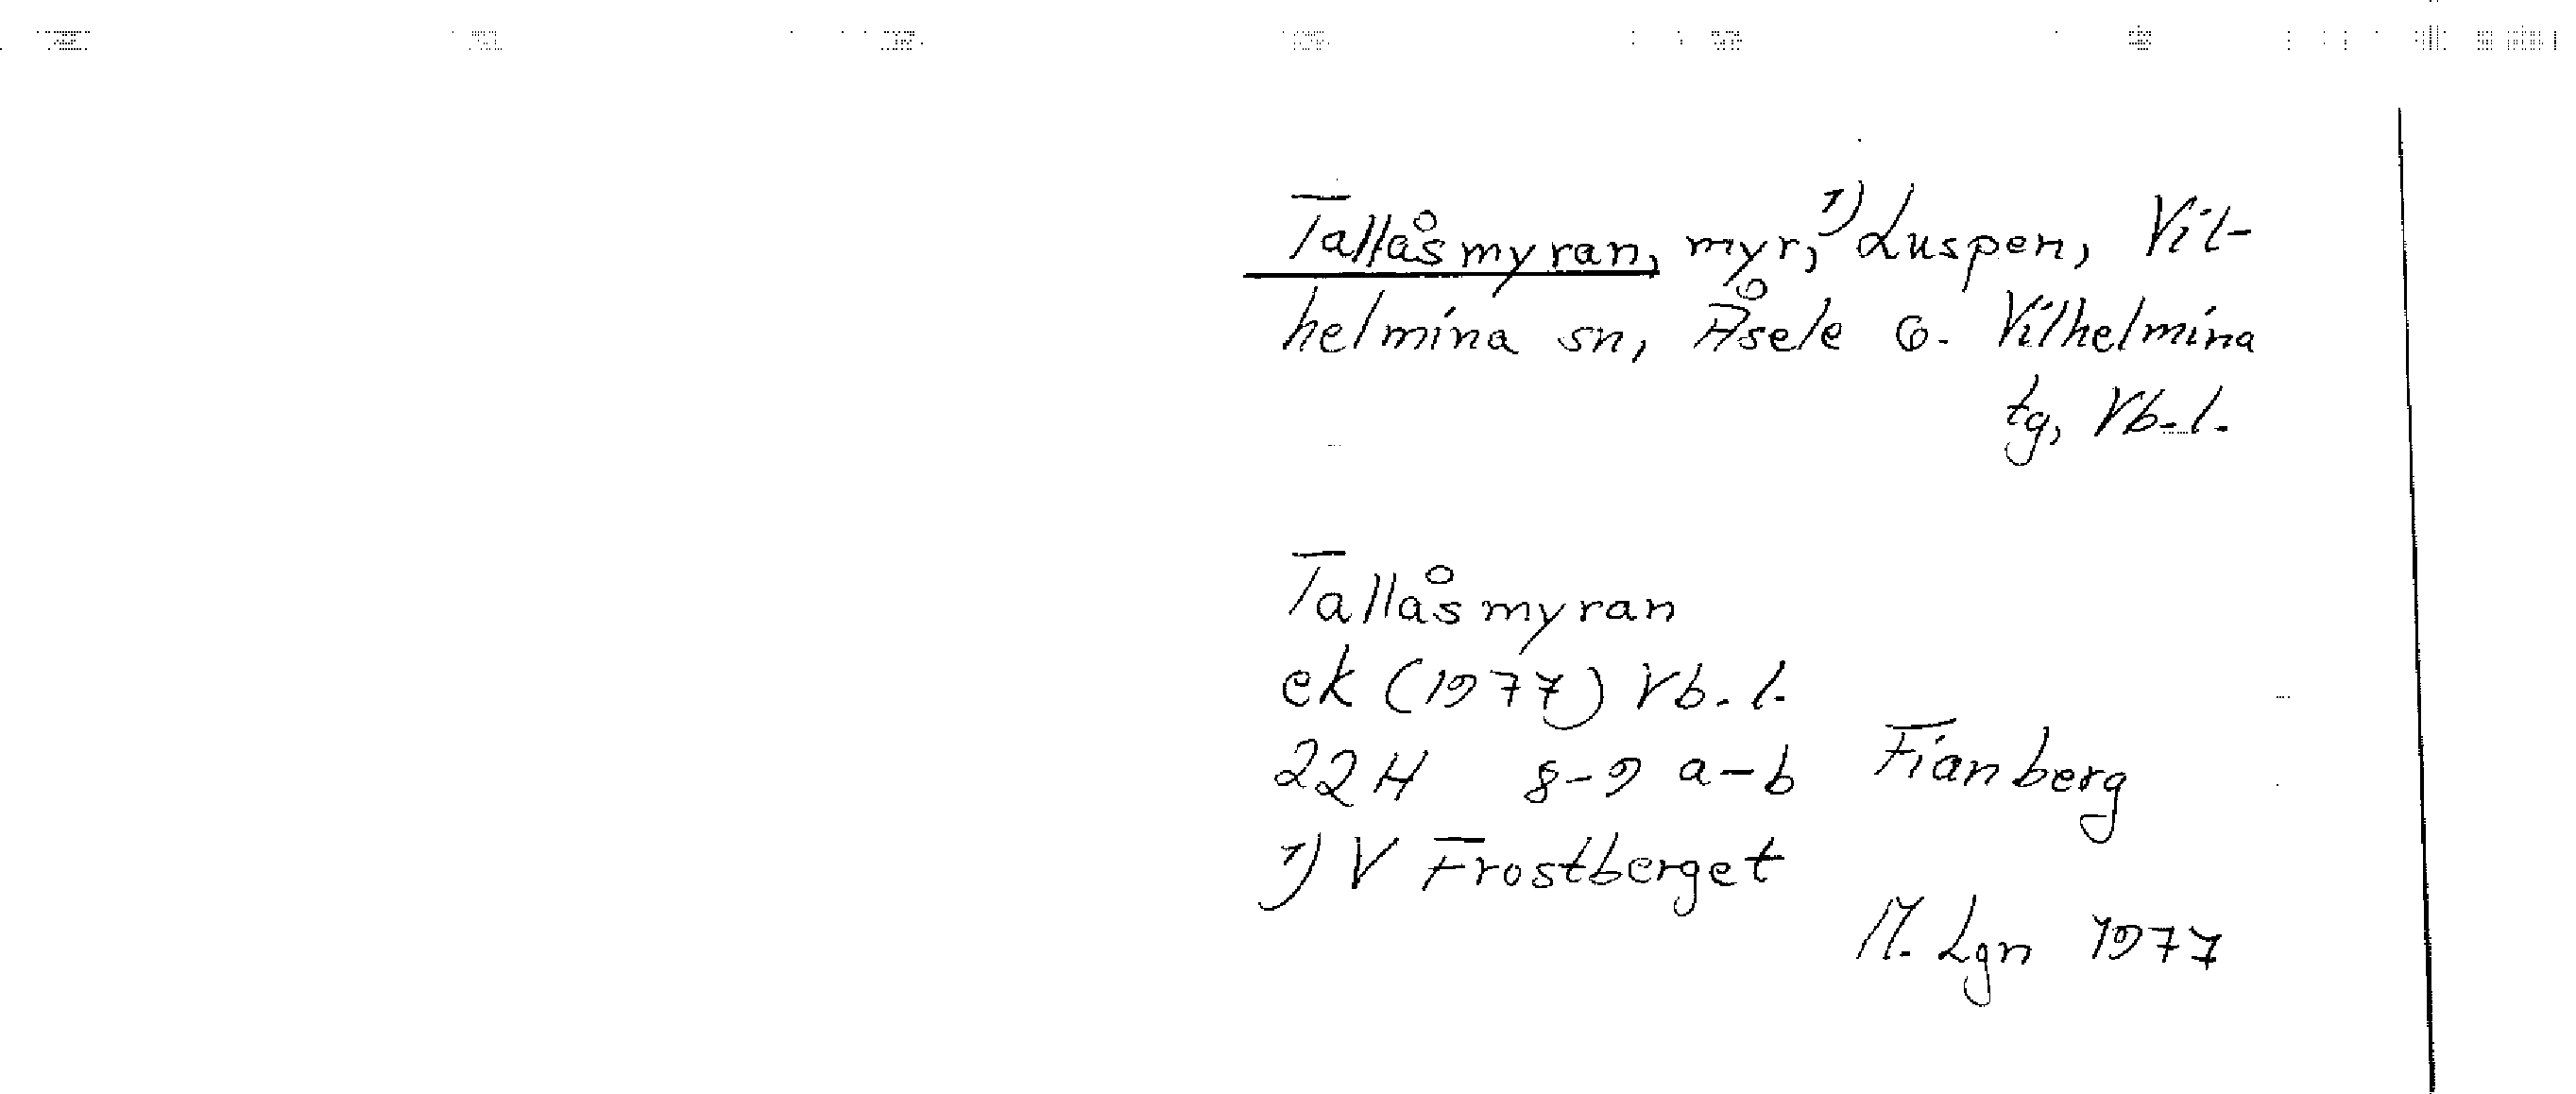 Tallåsmyran, myr,¹) Luspen, Vil-
helmina sn, Åsele o. Vilhelmina
tg, Vb. l.
Tallåsmyran
ek (1977) Vb. l.
22H 8-9 a-b Fianberg
1) V Frostberget
M. Lgn 1977